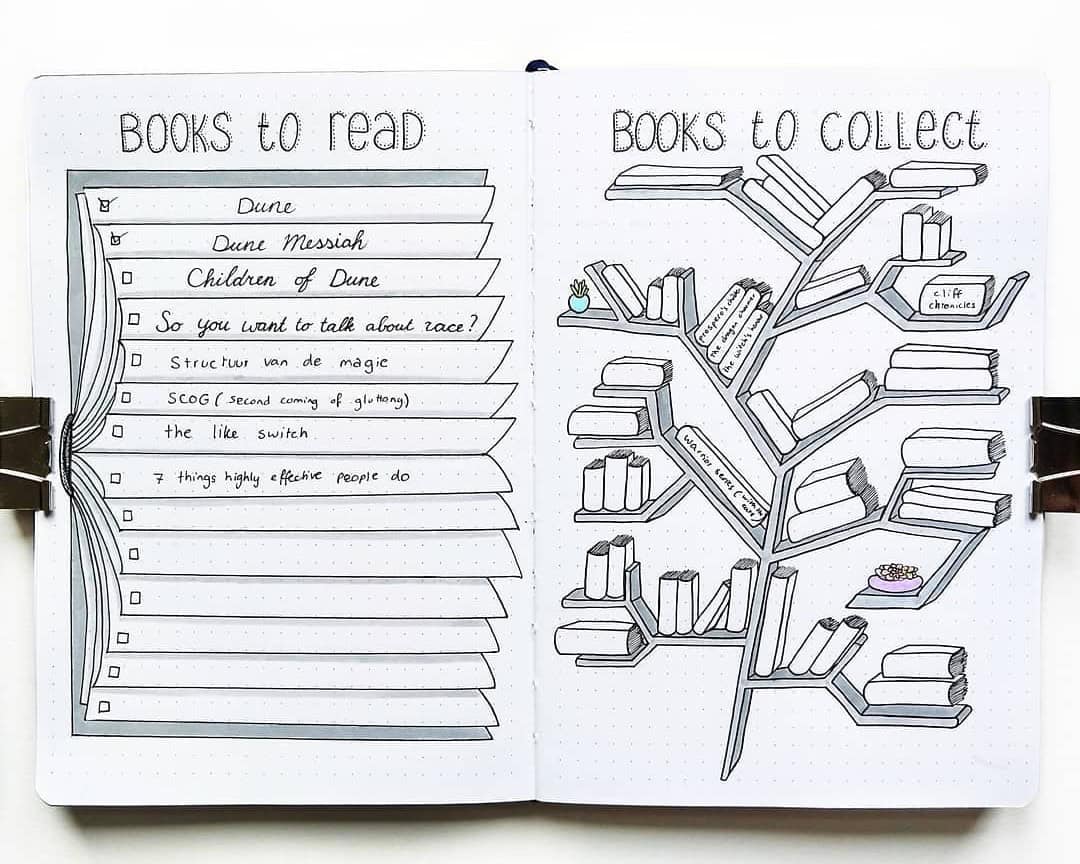 BOOKS to read
Dune
Dune Messiah
Children of Dune
So you want to talk about race?
Structuur van de magie
SCOG (second coming of gluttony)
the like switch
7 things highly effective people do
BOOKS to COLLEct
prospero's
the dragon
the witch's hand
cliff
chronicles
warrior series (with the